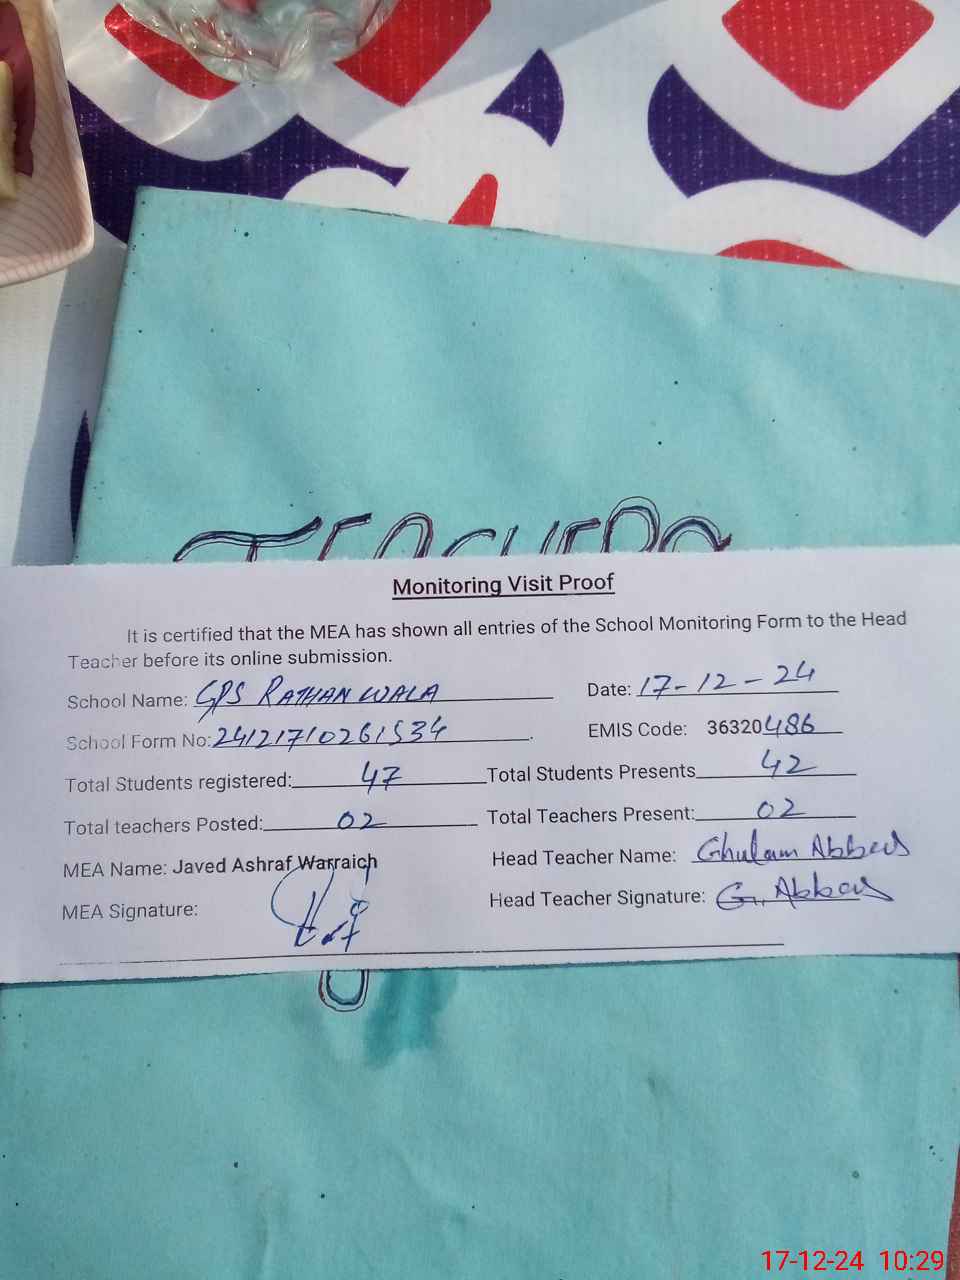 TEACHERS
Monitoring Visit Proof
It is certified that the MEA has shown all entries of the School Monitoring Form to the Head
Teacher before its online submission.
School Name: GPS RATHAN WALA Date: 17-12-24
School Form No: 24121710261534. EMIS Code: 36320486
Total Students registered: 47 Total Students Presents 42
Total teachers Posted: 02 Total Teachers Present: 02
MEA Name: Javed Ashraf Warraich Head Teacher Name: Ghulam Abbas
MEA Signature: Head Teacher Signature: G. Abbas
17-12-24 10:29